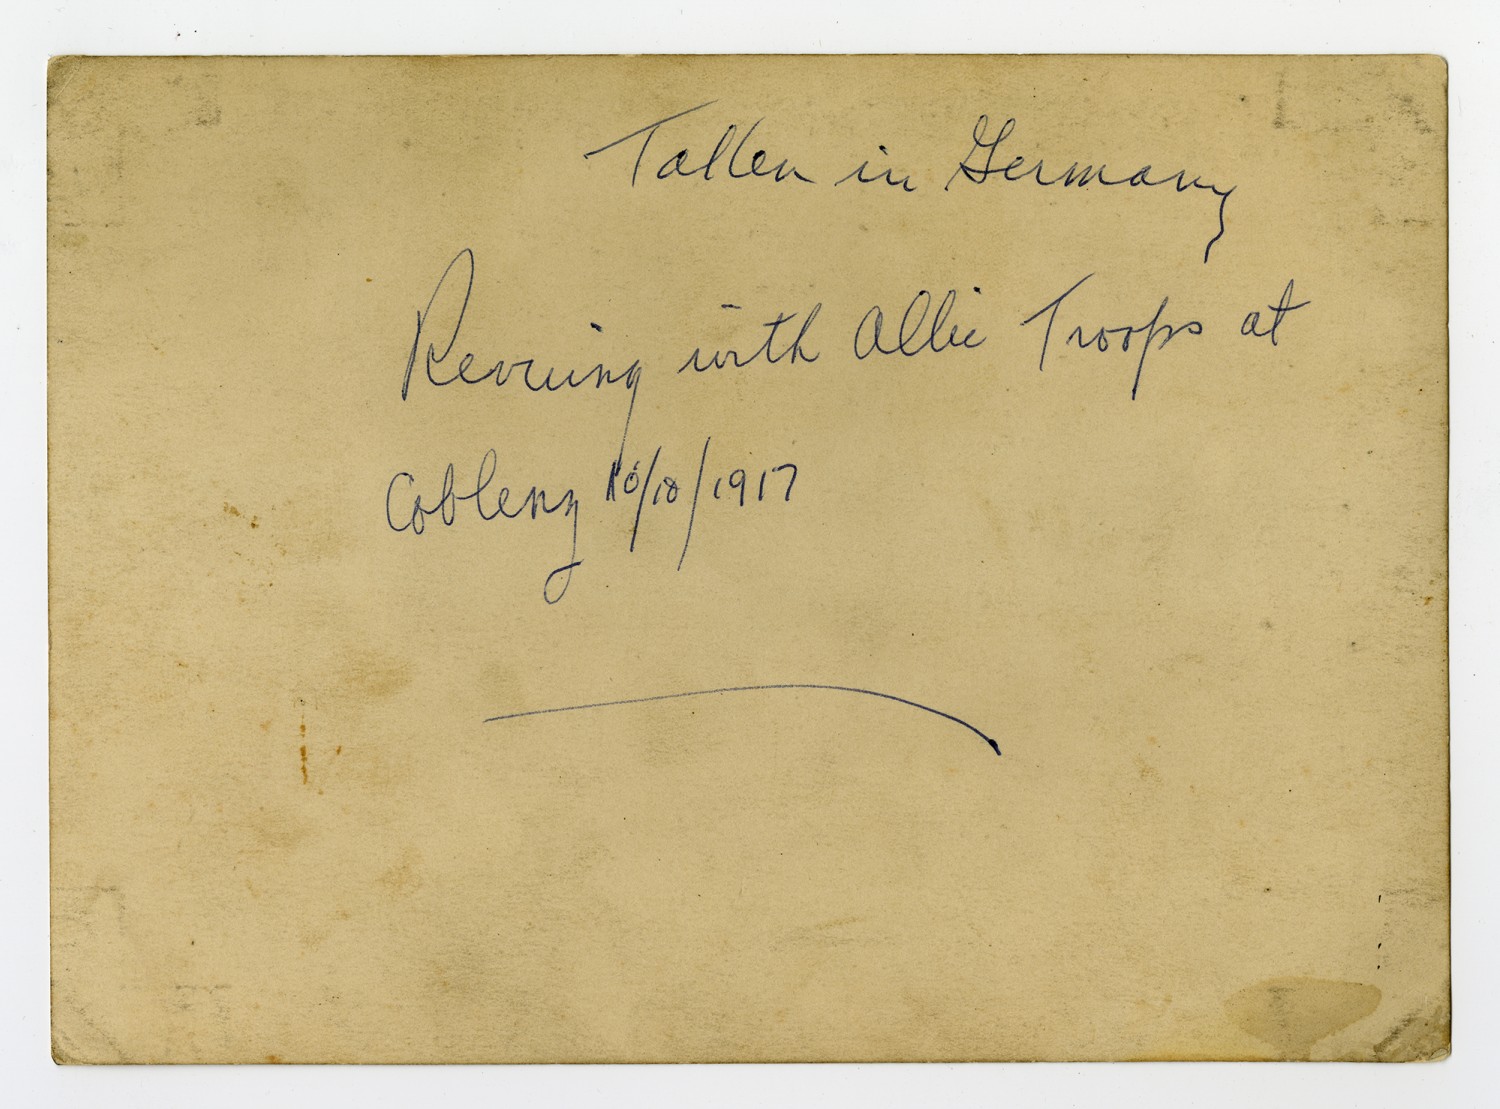 Taken in Germany
Revuing with Allie Troops at
Coblenz 10/18/1917